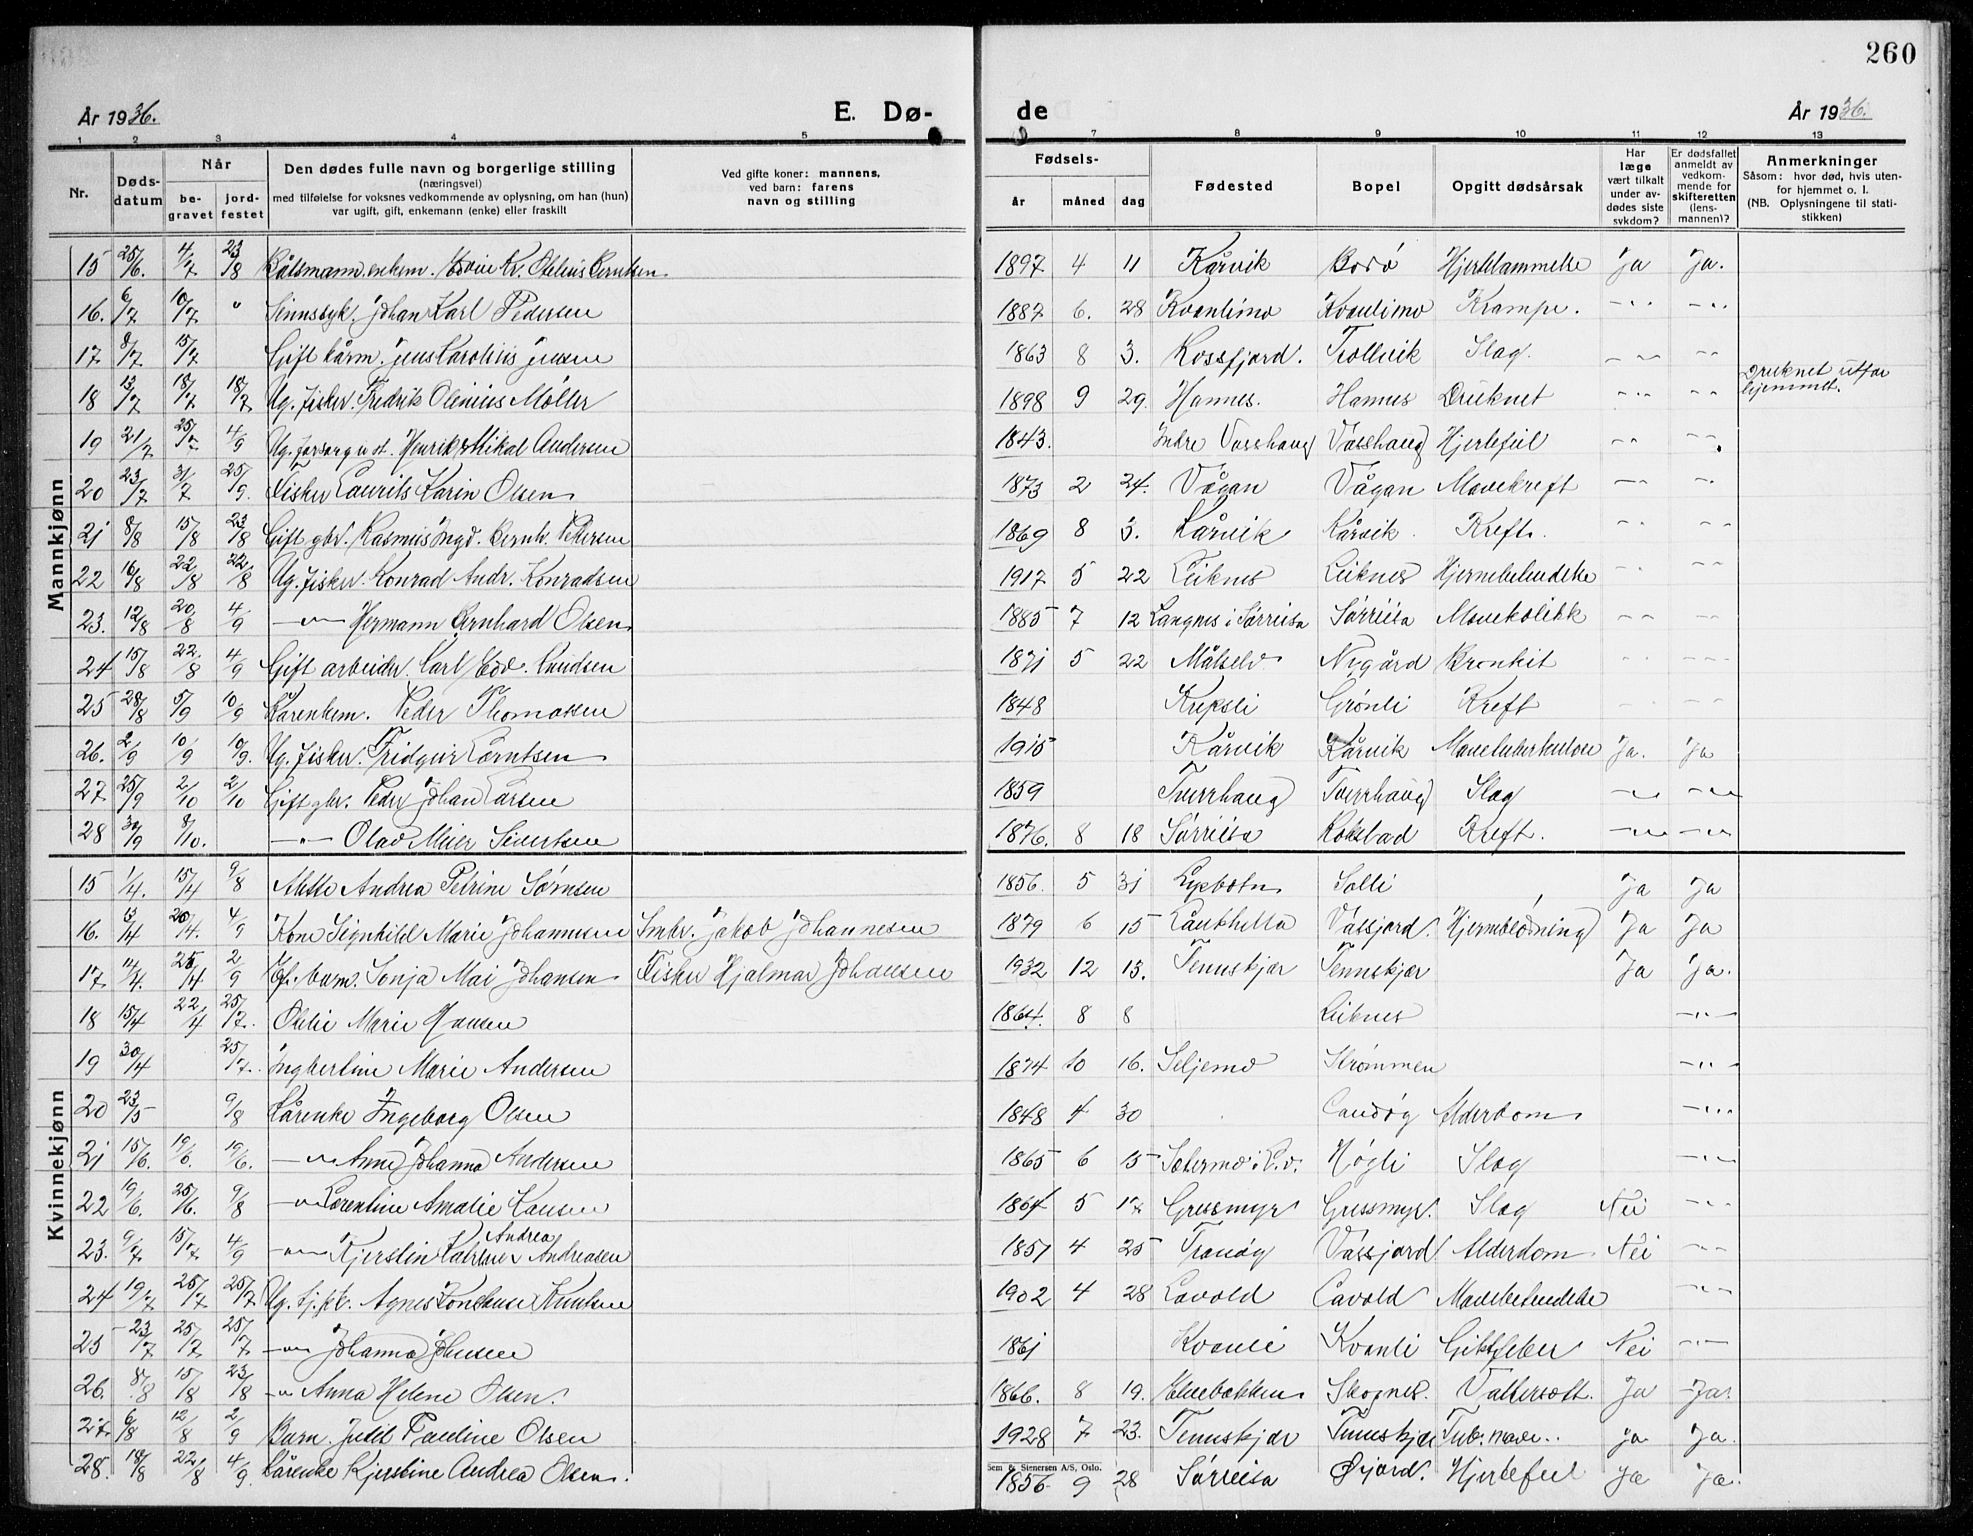 260
År 1936. E. Dø- de År 1936.
1 2 3 4 5 7 8 9 10 11 12 13
Nr. Døds-datum Når be-gravet jord-festet
Den dødes fulle navn og borgerlige stilling
(næringsvei)
med tilføielse for voksnes vedkommende av oplysning, om han (hun)
var ugift, gift, enkemann (enke) eller fraskilt
Ved gifte koner: mannens,
ved barn: farens
navn og stilling
Fødsels-
år måned dag
Fødested Bopel Opgitt dødsårsak
Har læge vært tilkalt under av-dødes siste sykdom?
Er dødsfallet anmeldt av vedkom-mende for skifteretten (lens-mannen)?
Anmerkninger
Såsom: hvor død, hvis uten-
for hjemmet o. l.
(NB. Oplysningene til stati-
stikken)
Mannkjønn
15 25/6. 4/7 23/8 Båtsmann, enkem. Kr. Otelius Berntsen 1897 4 11 Kårvik Bodø Hjertelammelse Ja Ja.
16. 6/7 10/7 " Sinnssyk. Johan Karl Pedersen 1887 6. 28 Kvanlimo Kvanlimo Krampe. -"- -"-
17 8/7 15/7 Gift kårm. Jens Carolius Jensen 1863 8 3. Rossfjord. Trollvik Slag. -"- -"-
18 13/7 18/7 18/7 Ug. fisker. Fredrik Olenius Møller 1898 9 29. Hamnes. Hamnes Druknet -"- -"- Druknet utfor hjemmet.
19 21/7 25/7 4/9 Ug. Henrik Mikal Andersen 1843. Indre Vasshaug Vasshaug Hjertefeil -"- -"-
20 23/7 31/7 25/9. Fisker Laurits Karin Olsen 1873 2 24. Vågan Vågan Mavekreft -"- -"-
21 8/8 15/8 23/8 Gift gbr. Rasmus Ingd. Bernh. Pettersen 1869 8 3. Kårvik Kårvik. Kreft. -"- -"-
22 16/8 22/8 22/8 Ug. fisker. Konrad Andr. Konradsen 1917 5 22 Leiknes Leiknes Hjernebetendelse -"- -"-
23. 12/8 20/8 4/9 -"- Hermann Bernhard Olsen 1885 7 12 Langnes i Sørreisa Sørreisa Mavekolikk -"- -"-
24 15/8 22/8 4/9 Gift arbeider. Carl Edv. Knudsen 1871 5 22 Målselv Nygård Bronkit -"- -"-
25 28/8 5/9 10/9 Kårenkem. Peder Thomassen 1848 Grønli Kreft -"- -"-
26. 2/9 10/9 10/9. Ug. fisker. Fridgeir Berntsen 1915 Kårvik Kårvik Mavetuberkulose Ja. Ja
27 25/9 2/10 2/10 Gift gbr. Peder Johan Larsen 1859 Tverrhaug Tverrhaug Slag -"- -"-
28 30/9 8/10. -"- Olav Meier Sivertsen 1876. 8 18 Sørreisa Rokstad Kreft. -"- -"-
Kvinnekjønn
15 1/4. 15/4 9/8 Alette Andrea Petrine Sørnsen 1856. 5 31 Lysbotn Solli Ja Ja
16. 13/4 20/4. 4/9 Kone Signhild Marie Johannesen Smbr. Jakob Johannesen 1879 6 15 Laukhella Vassjord. Hjerneblødning Ja Ja
17. 17/4. 25/4 2/9 barn. Sonja Mai Johansen Fisker Hjalmar Johansen 1932 12 13. Tennskjær Tennskjær Ja Ja.
18 15/4 22/4 25/7. Otelie Marie Hansen 1864. 8 8 Leiknes -"-
19 30/4 25/7. Ingbertine Marie Andersen 1874 10 16. Seljemo Strømmen -"-
20 23/5 9/8 Kårenke Ingeborg Olsen 1848 4 30 Alderdom -"-
21 15/6. 19/6. 19/6. -"- Anne Johanna Andersen 1865 6 15 Høgli Slag -"-
22 19/6. 25/6. 9/8 -"- Lorentine Amalie Hansen 1864 5 17 Gressmyr Gressmyr. Slag Nei -"-
23. 9/7 15/7 4/9 -"- Kjerstin Andrea Andreasen 1851 4 25 Tranøy Vassjord Alderdom Nei -"-
24 19/7 25/7 25/7 Ug. Agnes Konstanse Knutsen 1902 4 28 Lavold Lavold Mavebetendelse -"-
25 23/7 25/7 25/7 -"- Johanna Johnsen 1861 Kvanli Kvanli Giktfeber Nei -"-
26. 8/8 15/8 23/8 -"- Anna Helene Olsen. 1866. 8 19. Skognes. Vattersott. Ja Ja.
27. 6/8 12/8 2/9 Barn. Judit Pauline Olsen 1928 7 23. Tennskjær Tennskjær Tub. mave. Ja. Ja.
28. 18/8 22/8 4/9. Kårenke Kjerstine Andrea Olsen. 1856 9 28 Sørreisa Øijord. Hjertefeil Ja Ja.
Sem & Stenersen A/S, Oslo.